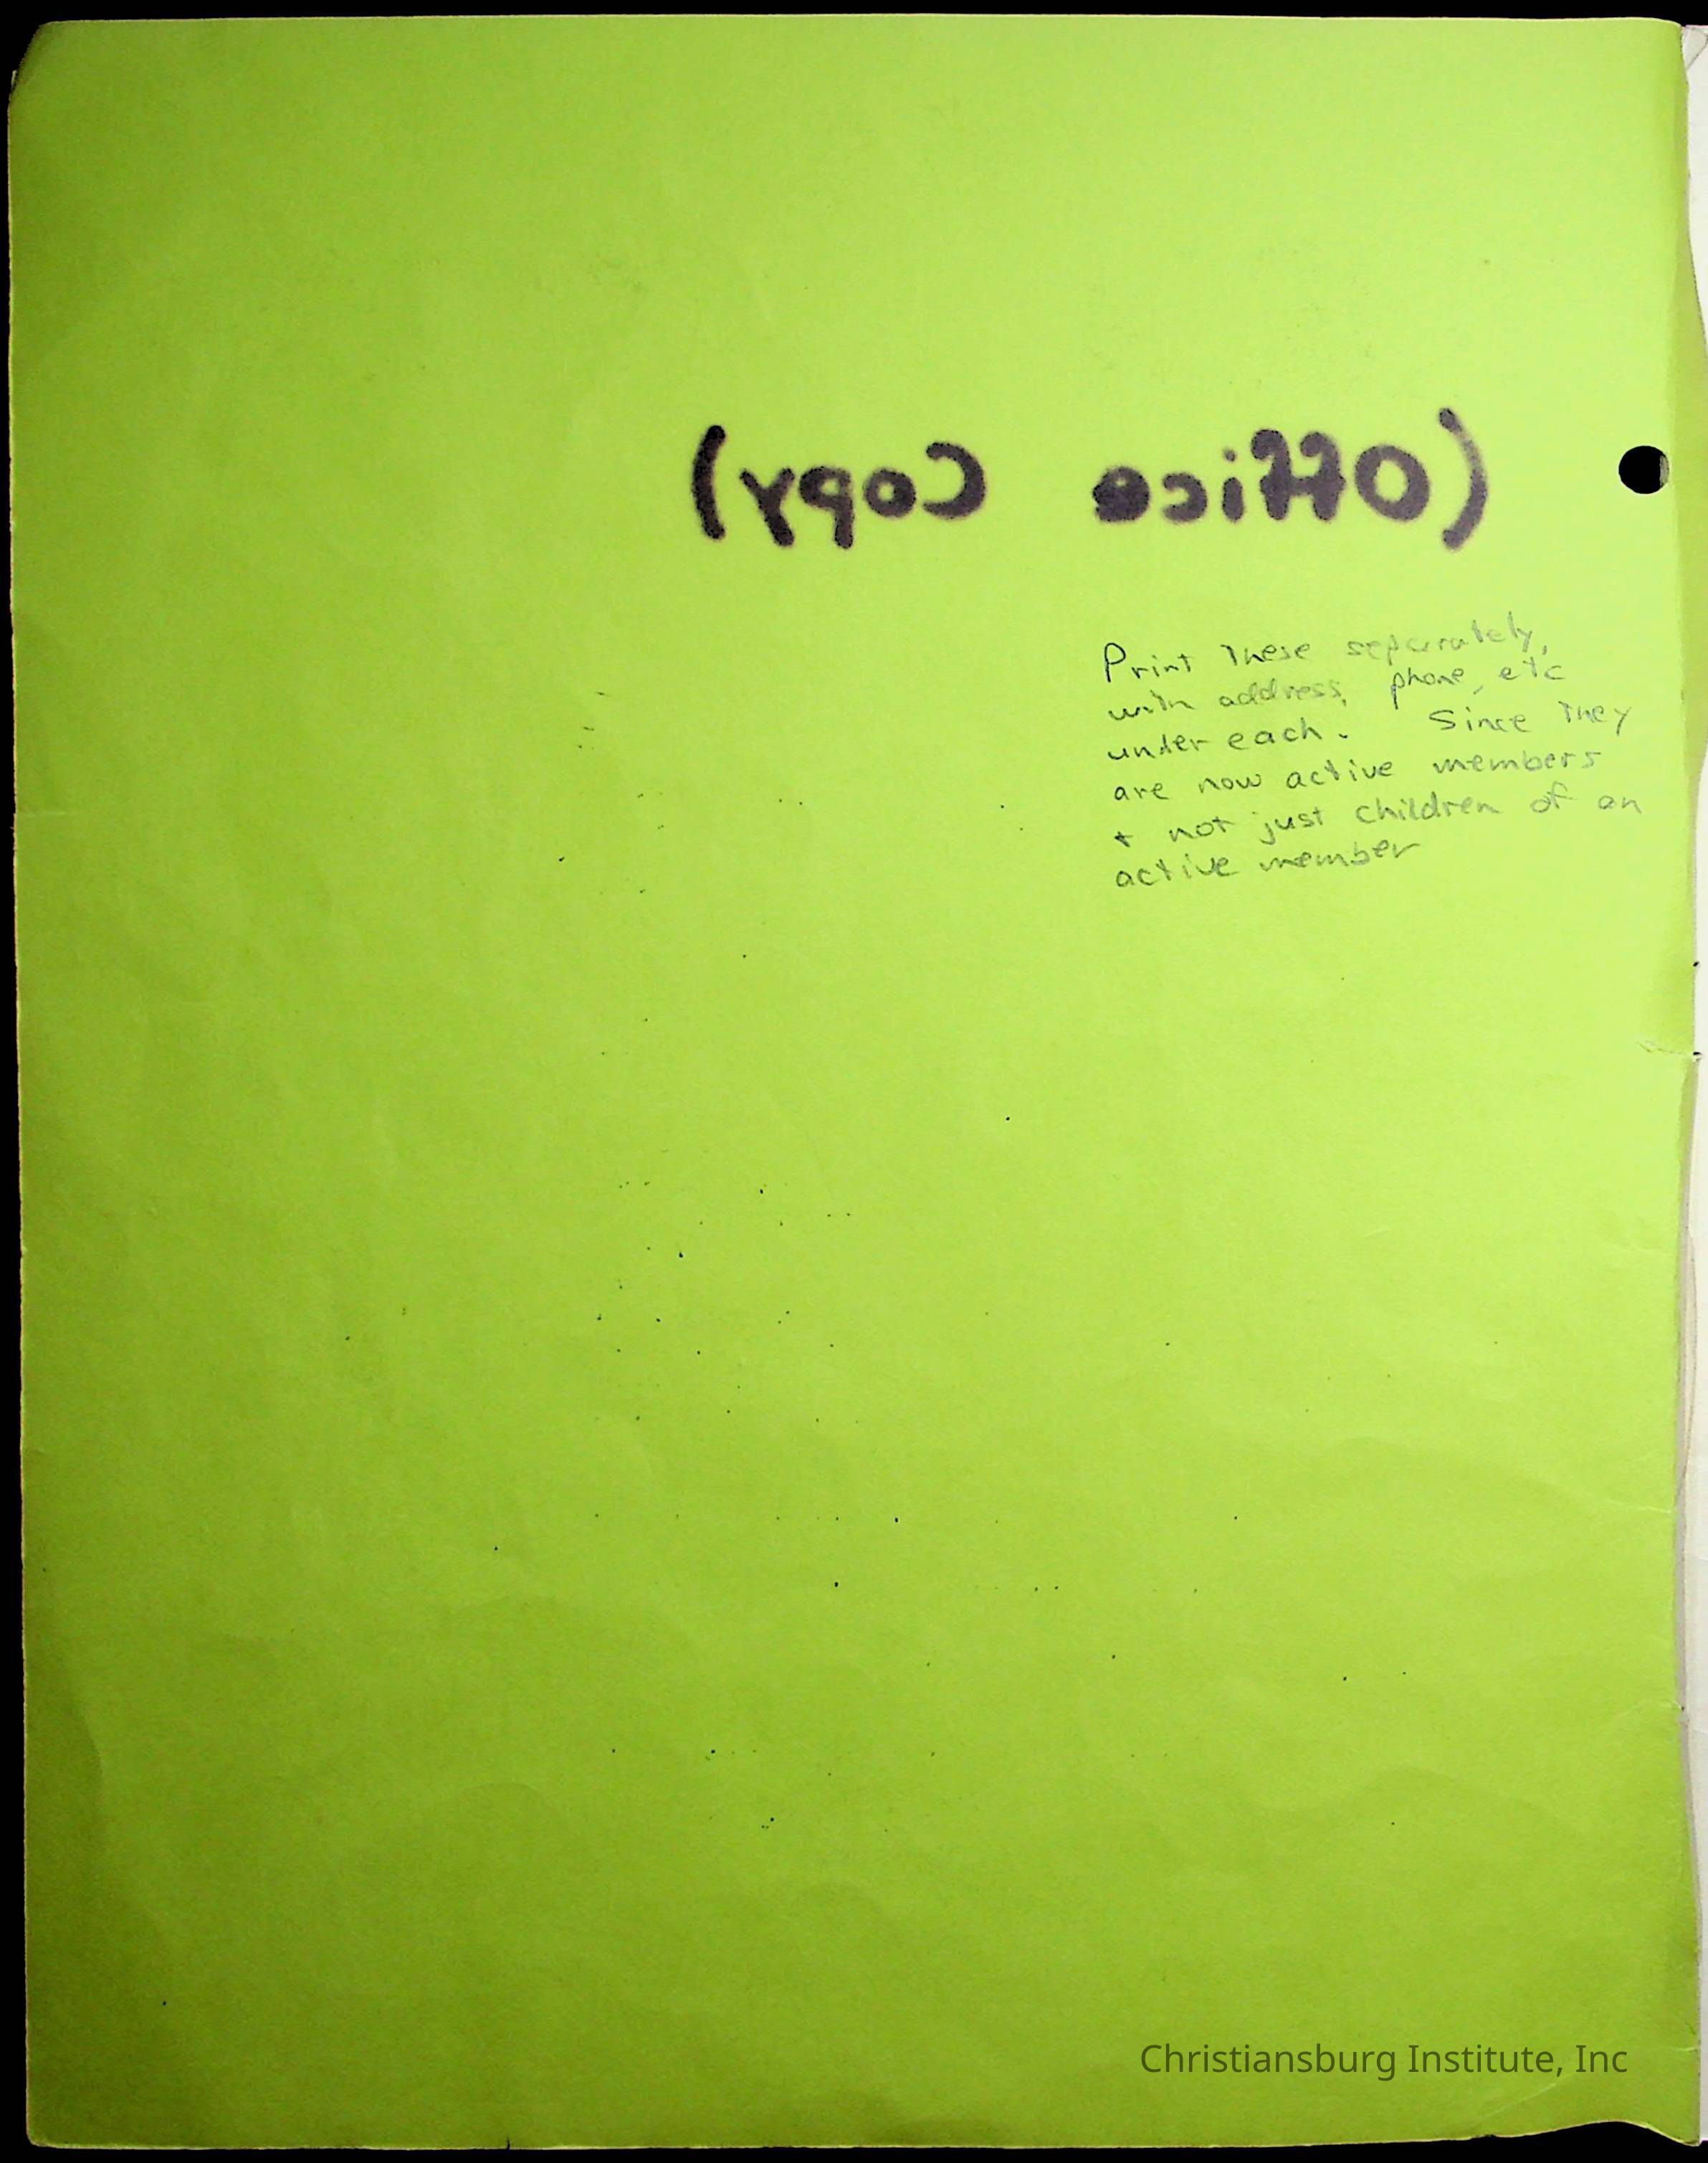 (Office Copy)
Print these separately,
with address, phone, etc
under each. Since they
are now active members
+ not just children of an
active member
Christiansburg Institute, Inc